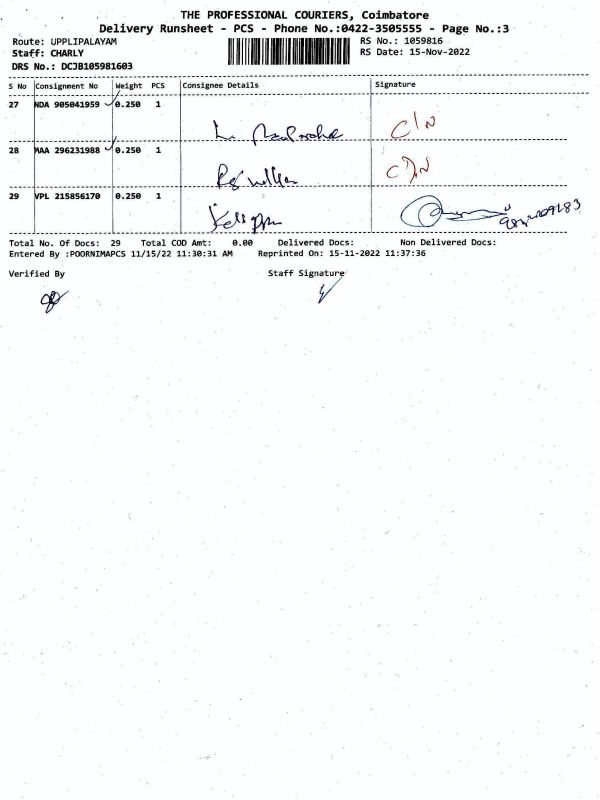 THE PROFESSIONAL COURIERS, Coimbatore
Delivery Runsheet - PCS - Phone No.:0422-3505555 - Page No.:3
Route: UPPLIPALAYAM RS No.: 1059816
Staff: CHARLY RS Date: 15-Nov-2022
DRS No.: DCJB105981603
S No Consignment No Weight PCS Consignee Details Signature
27 NDA 905041959 0.250 1
C/N
28 MAA 296231988 0.250 1
C/N
29 VPL 215856170 0.250 1
Total No. Of Docs: 29 Total COD Amt: 0.00 Delivered Docs: Non Delivered Docs:
Entered By :POORNIMAPCS 11/15/22 11:30:31 AM Reprinted On: 15-11-2022 11:37:36
Verified By Staff Signature